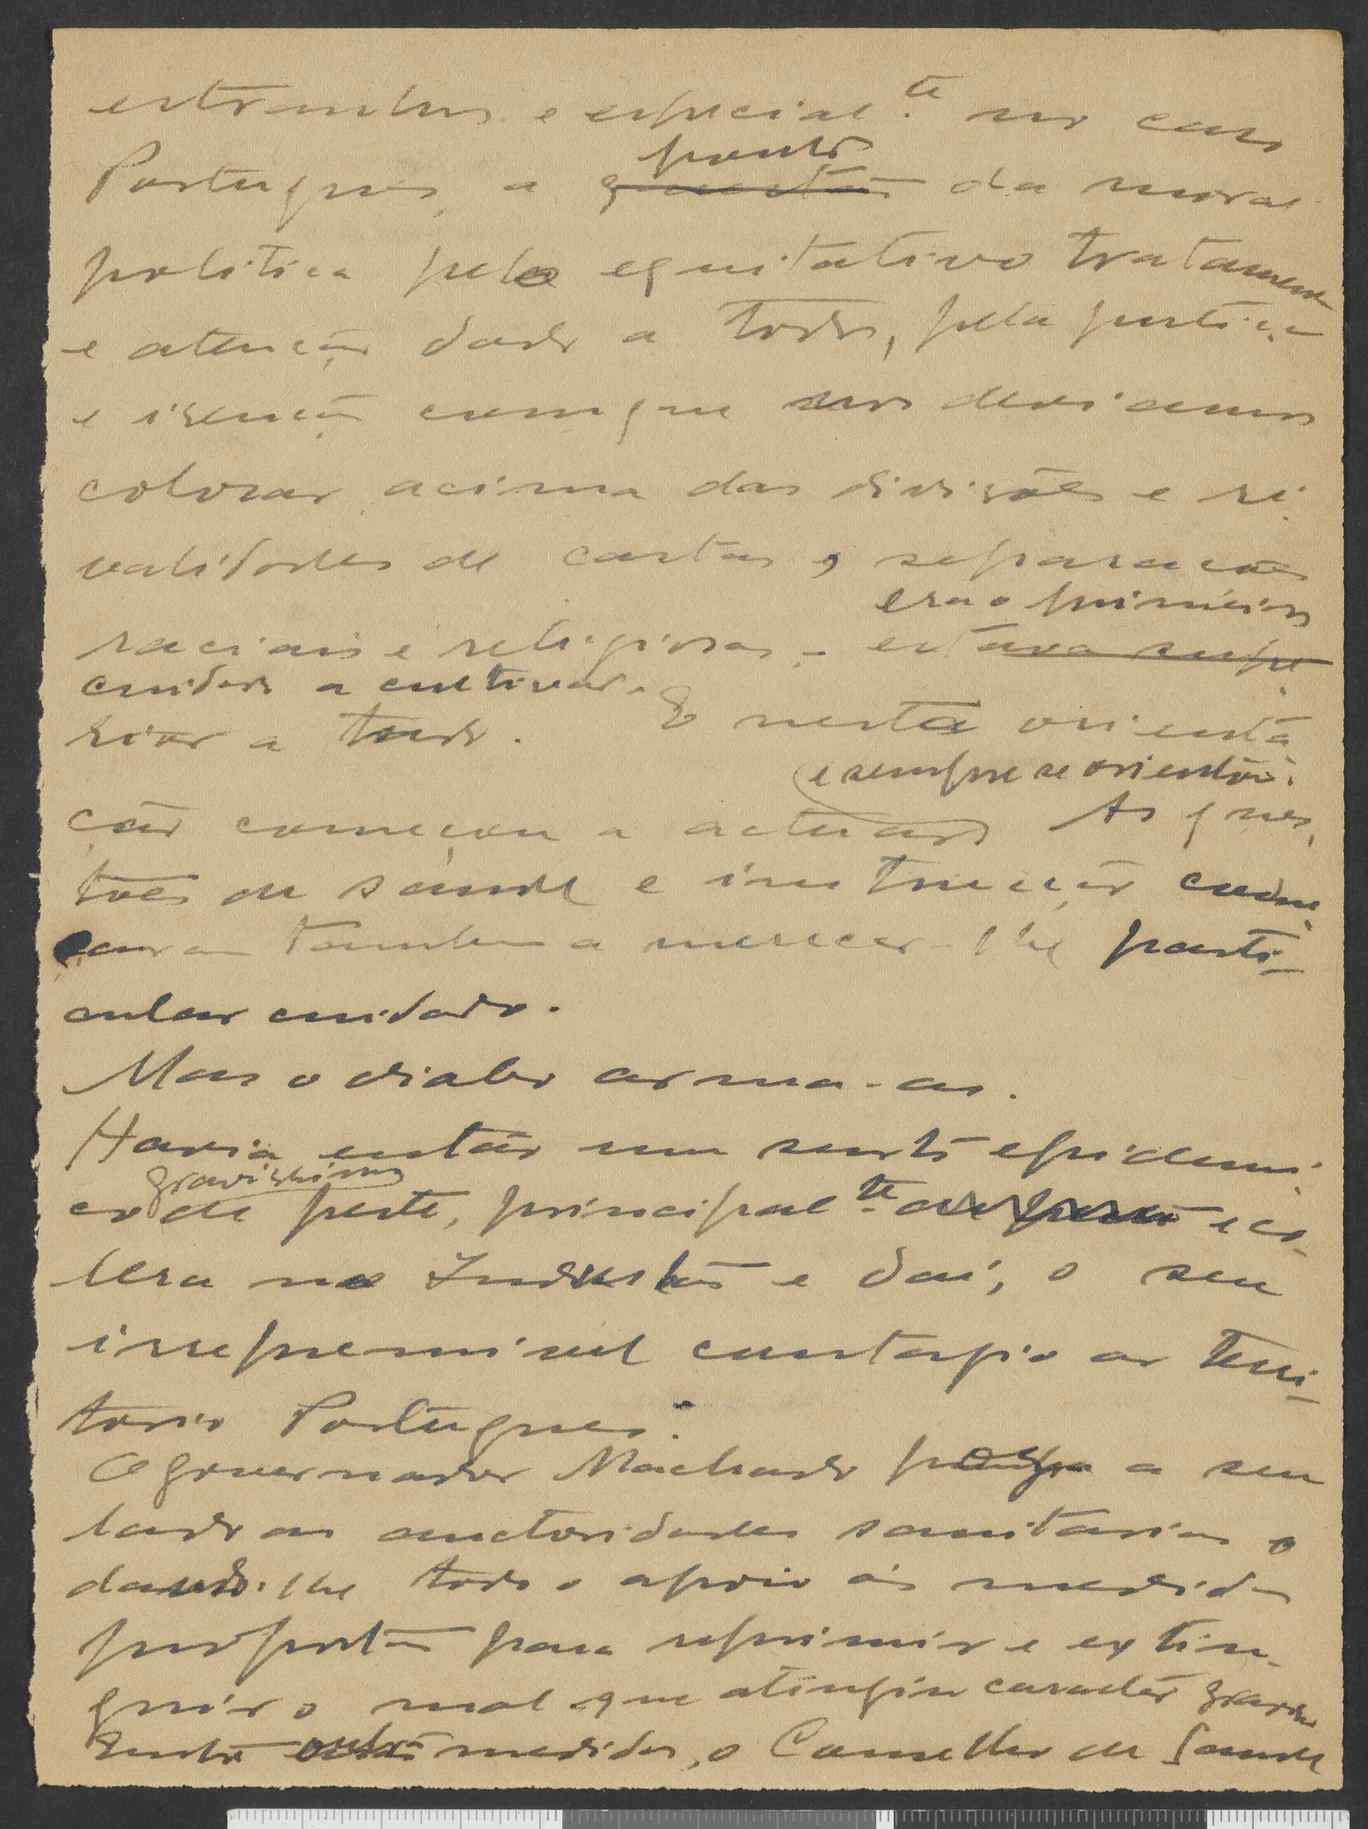 e especial.te no caso
ponto
Portugues, a questão da moral
politica pelo equitativo tratamento
e atenção dado a todos, pela justiça
e isenção com que nos deviamos
colocar acima das divisões e ri-
validades de castas, separações
era o primeiro
raciais e religiosas, - estava supe-
cuidado a cultivar.
rior a tudo. E nesta orienta-
e sempre se orientou.
ção começou a actuar. As ques-
tões de saude e instrucção come-
çaram tambem a merecer-lhe parti-
cular cuidado.
Mas o diabo arma-as.
Havia então um surto epidemi-
gravissimo
co de peste, principal.te e co-
lera no Industão e daí, o seu
irrepremivel contagio ao terri-
torio Portugues.
O governador Machado a seu
lado as auctoridades sanitarias e
dando-lhe todo o apoio ás medidas
propostas para reprimir e extin-
guir o mal que atingiu caracter grave
Entre outras medidas, o Conselho de Saude